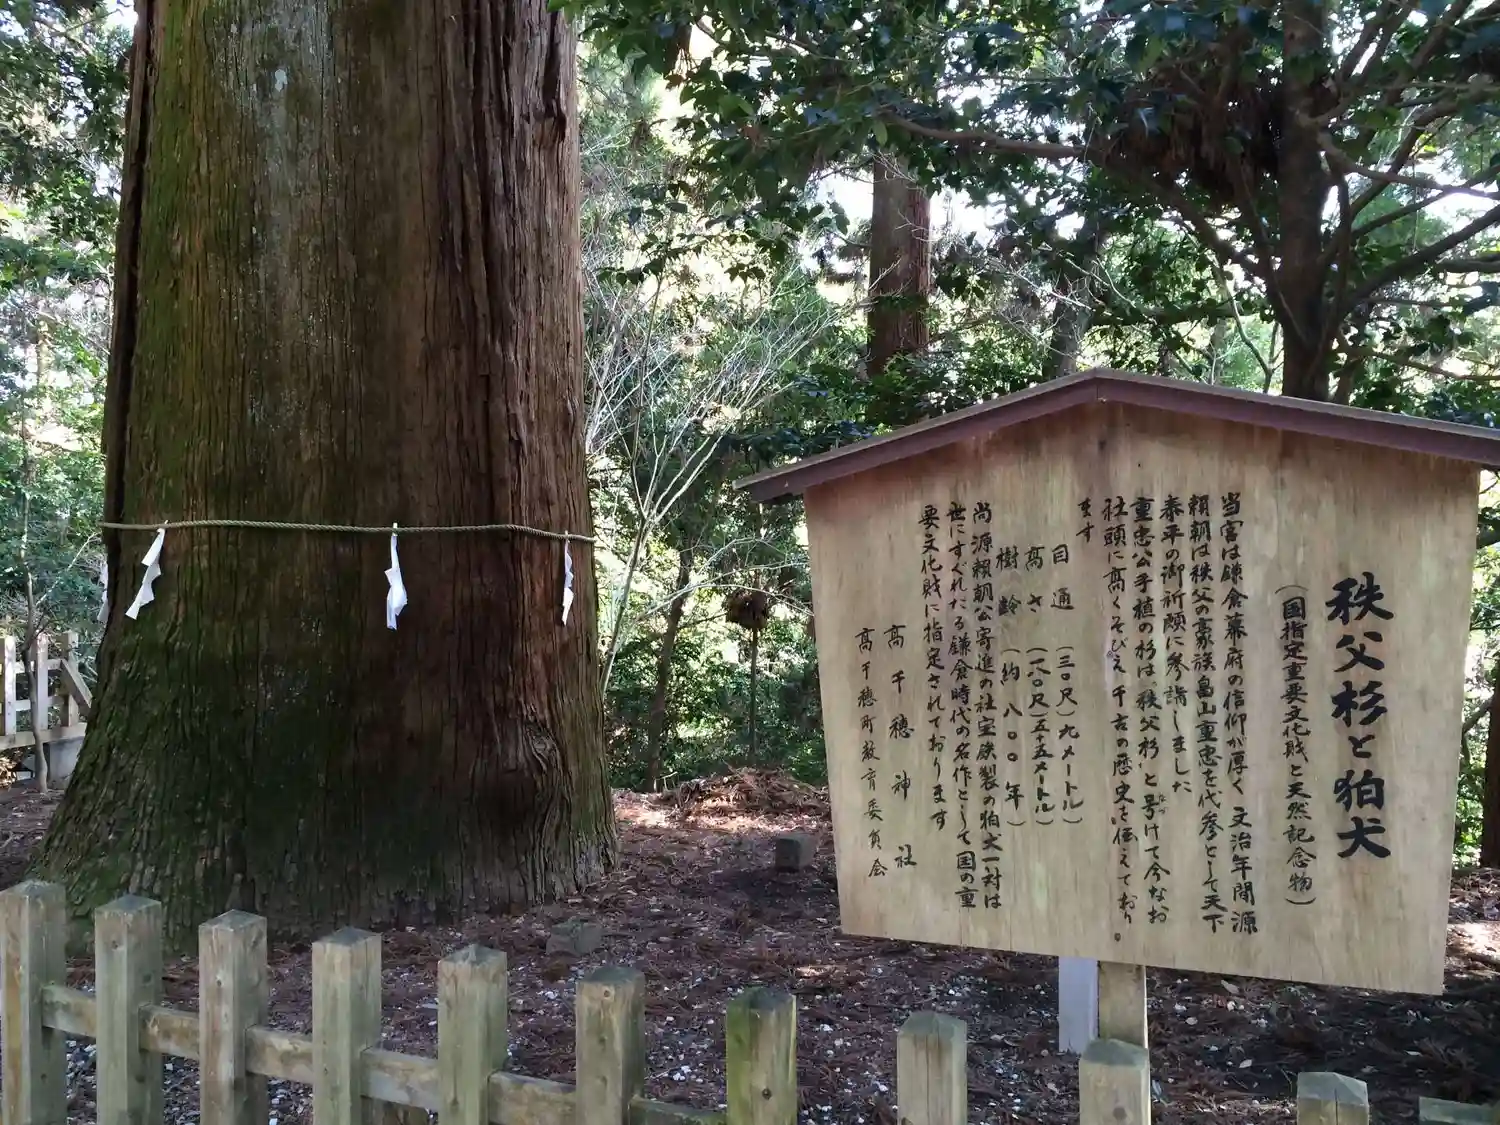 秩父杉と狛犬
（国指定重要文化財と天然記念物）
当宮は鎌倉幕府の信仰が厚く 文治年間源
頼朝は秩父の豪族畠山重忠を代参として天下
泰平の御祈願に参詣しました
重忠公手植の杉は"秩父杉"と号けて今なお
社頭に高くそびえ 千古の歴史を伝えており
ます
目通（三〇尺）九メートル）
高さ（一八〇尺（五・五メートル）
樹齢（約八〇〇年）
尚源頼朝公寄進の社宝鉄製の狛犬一対は
世にすぐれたる鎌倉時代の名作として国の重
要文化財に指定されております
高千穂神社
高千穂町教育委員会